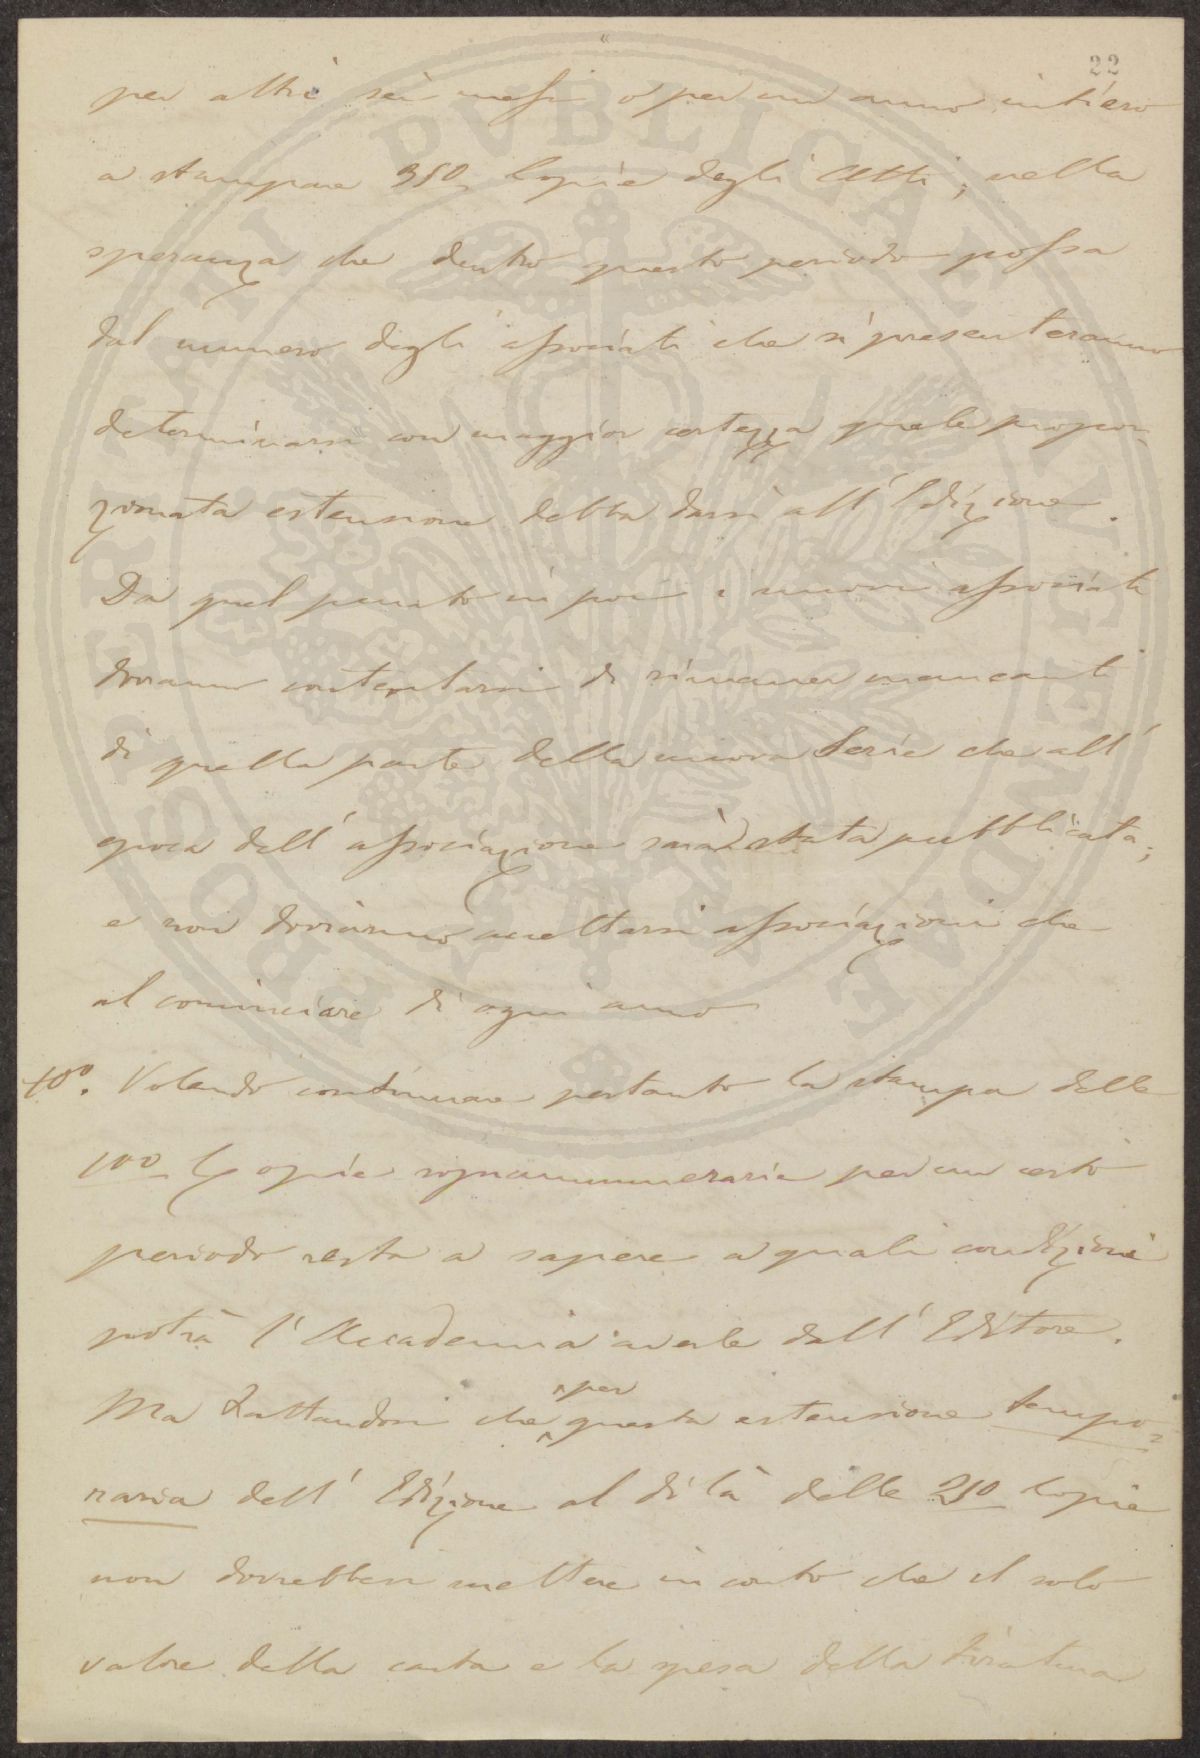 22
per altri sei mesi o per un anno intiero
a stampare 350 Copie degli Atti, nella
speranza che dentro questo periodo possa
dal numero degli associati che si presenteranno
determinarsi con maggior certezza quale propor-
zionata estensione debba darsi all'Edizione.
Da quel punto in poi i nuovi associati
dovranno contentarsi di rimaner mancanti
di quella parte della nuova Serie che all'
epoca dell'associazione sarà stata pubblicata;
e non dovranno accettarsi associazioni che
al cominciare di ogni anno
10º. Volendo continuare pertanto la stampa delle
100 Copie soprannumerarie per un certo
periodo resta a sapere a quali condizioni
potrà l'Accademia averle dall'Editore.
per
Ma trattandosi che questa estensione tempo-
raria dell'Edizione al di là delle 250 Copie
non dovrebbesi mettere in conto che il solo
valore della carta e la spesa della tiratura
PROSPERITATI PVBLICAE AVGENDAE